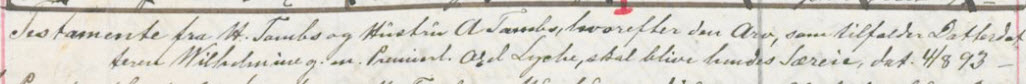 Testamente fra H. Tambs og Hustru A Tambs, hvorefter den Arv, som tilfalder Datterdat
teren Wilhelmine g. m. Premierl. Axel Lyche, skal blive hendes Særeie, dat. 4/8 93 —